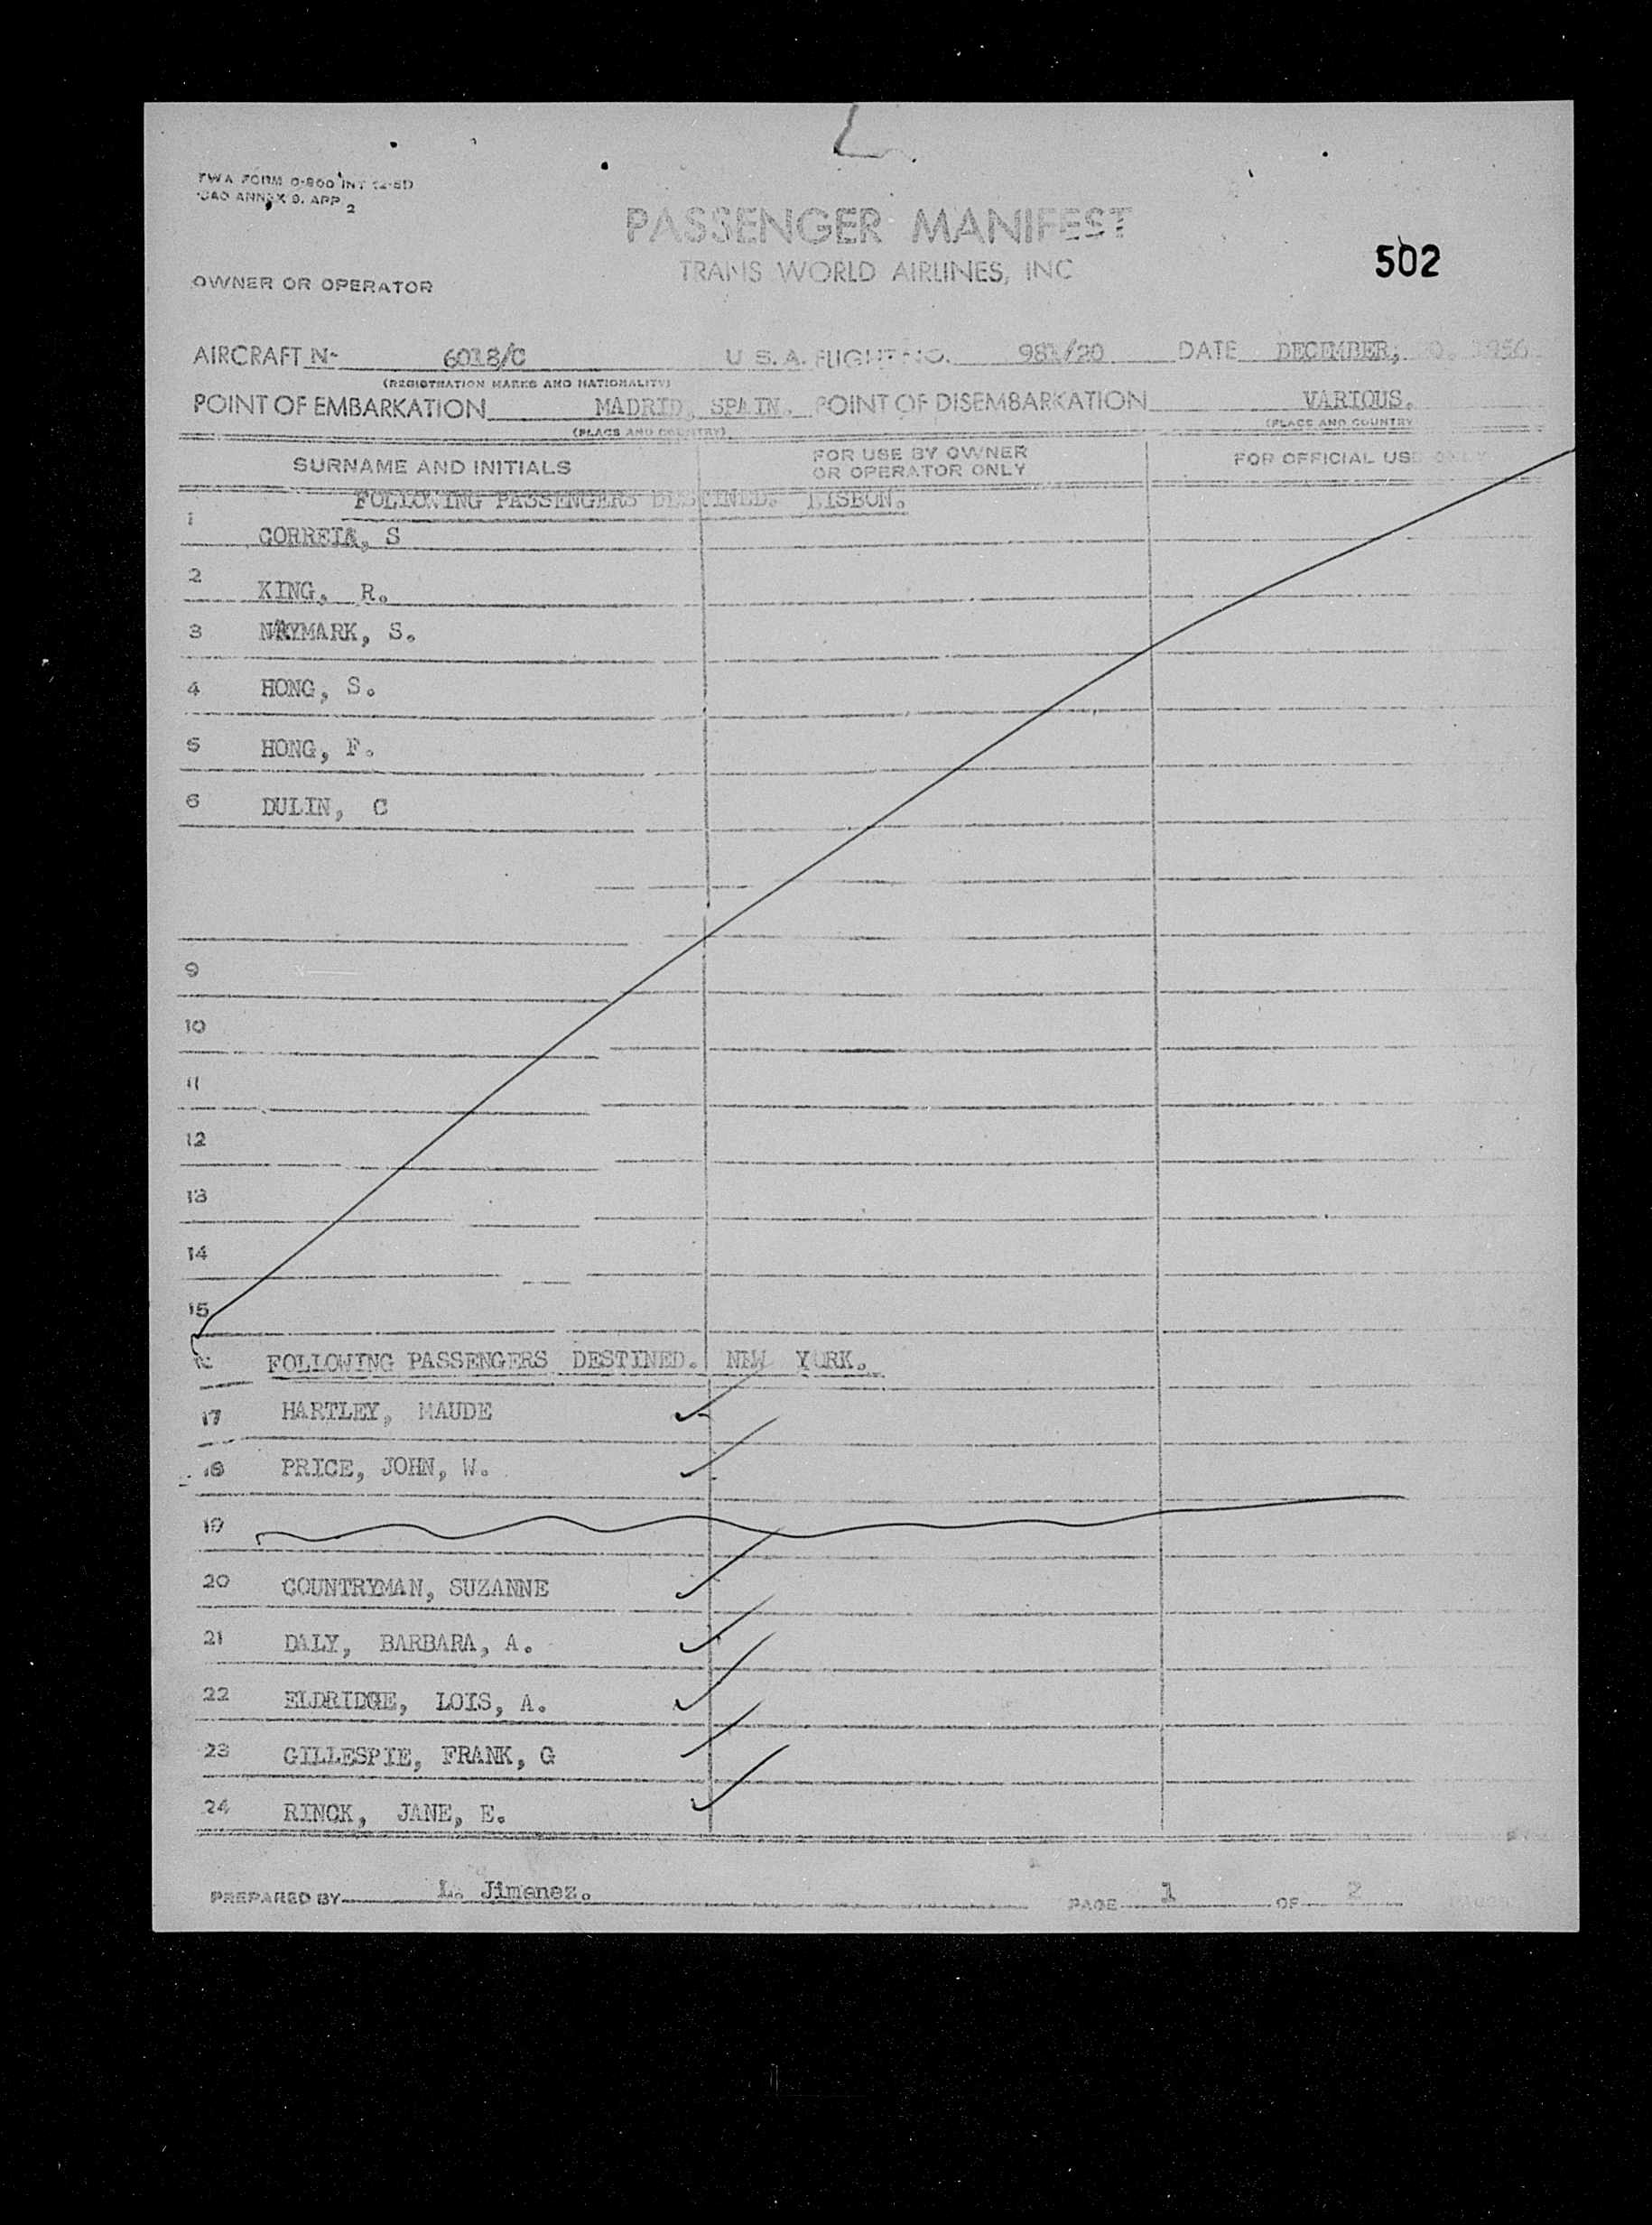 TWA FORM 0-800 INT
ICAO ANNEX 9. APP 2
PASSENGER MANIFEST
TRANS WORLD AIRLINES, INC
502
OWNER OR OPERATOR
AIRCRAFT N- 6018/C U. S. A. FLIGHT NO. 981/20 DATE DECEMBER, 1956
(REGISTRATION MARKS AND NATIONALITY)
POINT OF EMBARKATION MADRID, SPAIN. POINT OF DISEMBARKATION VARIOUS.
(PLACE AND COUNTRY) (PLACE AND COUNTRY
SURNAME AND INITIALS FOR USE BY OWNER OR OPERATOR ONLY FOR OFFICIAL USE ONLY
FOLLOWING PASSENGERS DESTINED. LISBON.
1 CORREIA, S
2 KING, R.
3 NAYMARK, S.
4 HONG, S.
5 HONG, F.
6 DULIN, C
9
10
11
12
13
14
15
FOLLOWING PASSENGERS DESTINED. NEW YORK.
17 HARTLEY, MAUDE
18 PRICE, JOHN, W.
19
20 COUNTRYMAN, SUZANNE
21 DALY, BARBARA, A.
22 ELDRIDGE, LOIS, A.
23 GILLESPIE, FRANK, G
24 RINCK, JANE, E.
PREPARED BY L. Jimenez. PAGE 1 OF 2